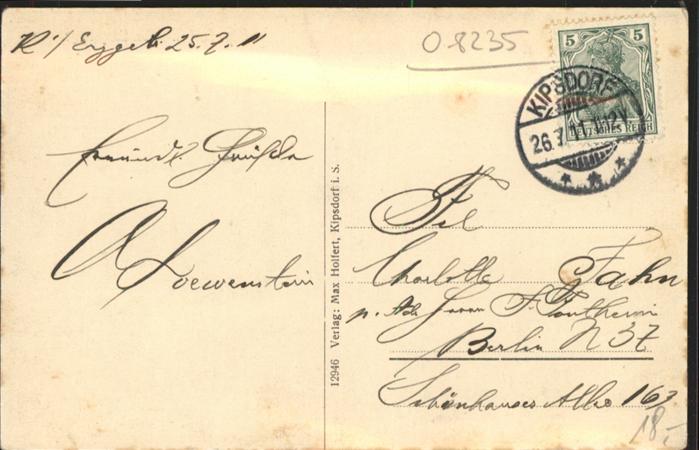 K i/ Erzgeb. 25.7.11
08235
5 5
DEUTSCHES REICH
KIPSDORF
26.7.11
Freundl. Grüße
A Loewenstein
12946 Verlag: Max Holfert, Kipsdorf i. S.
Frl
Charlotte Jahn
p. Adr Herrn
Berlin N 37
Schönhauser Allee 163
18,-